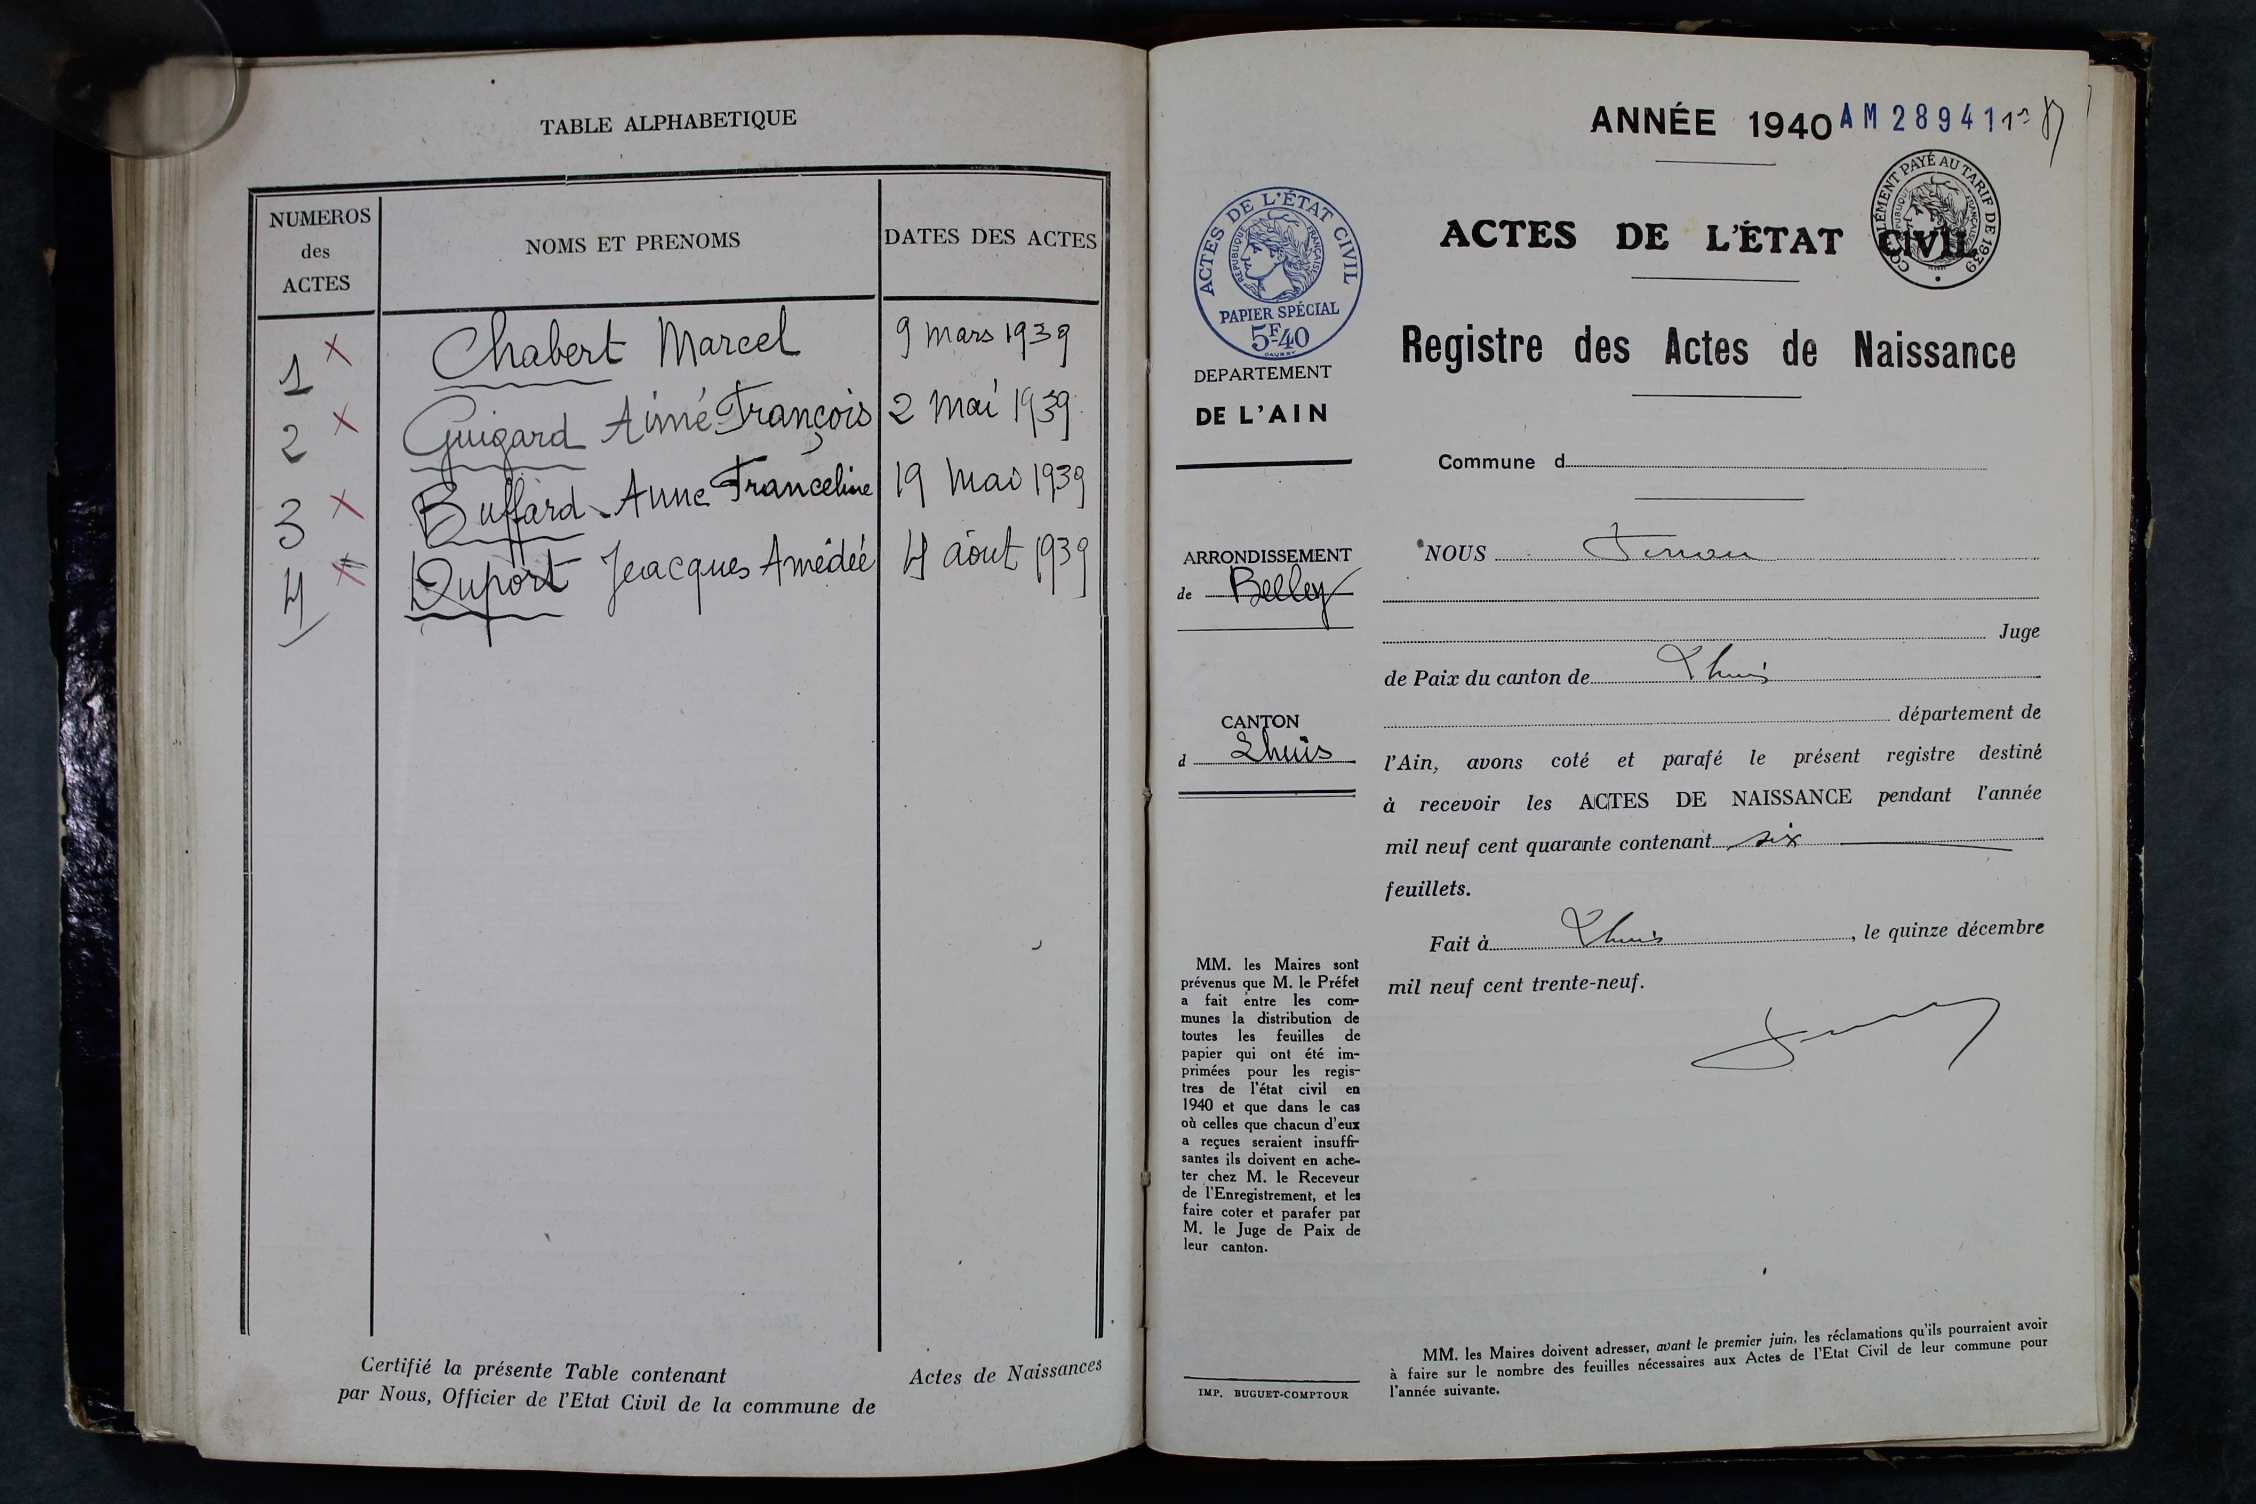 TABLE ALPHABETIQUE
NUMEROS
des
ACTES
NOMS ET PRENOMS
DATES DES ACTES
1 × Chabert Marcel 9 mars 1939
2 × Guigard Aimé François 2 Mai 1939
3 × Buffard Anne Franceline 19 Mai 1939
4 × Duport Jeacques Amédéé 4 août 1939
Certifié la présente Table contenant Actes de Naissances
par Nous, Officier de l'Etat Civil de la commune de
ANNÉE 1940 AM 28941
ACTES DE L'ÉTAT CIVIL
COMPLÉMENT PAYÉ AU TARIF DE 1939
RÉPUBLIQUE FRANÇAISE
ACTES DE L'ÉTAT CIVIL
RÉPUBLIQUE FRANÇAISE
PAPIER SPÉCIAL
5F.40
DEPARTEMENT
DE L'AIN
ARRONDISSEMENT
de Belley
CANTON
d Lhuis
MM. les Maires sont
prévenus que M. le Préfet
a fait entre les com-
munes la distribution de
toutes les feuilles de
papier qui ont été im-
primées pour les regis-
tres de l'état civil en
1940 et que dans le cas
où celles que chacun d'eux
a reçues seraient insuffi-
santes ils doivent en ache-
ter chez M. le Receveur
de l'Enregistrement, et les
faire coter et parafer par
M. le Juge de Paix de
leur canton.
IMP. BUGUET-COMPTOUR
Registre des Actes de Naissance
Commune d
NOUS
Juge
de Paix du canton de Lhuis
département de
l'Ain, avons coté et parafé le présent registre destiné
à recevoir les ACTES DE NAISSANCE pendant l'année
mil neuf cent quarante contenant six
feuillets.
Fait à Lhuis, le quinze décembre
mil neuf cent trente-neuf.
MM. les Maires doivent adresser, avant le premier juin, les réclamations qu'ils pourraient avoir
à faire sur le nombre des feuilles nécessaires aux Actes de l'Etat Civil de leur commune pour
l'année suivante.